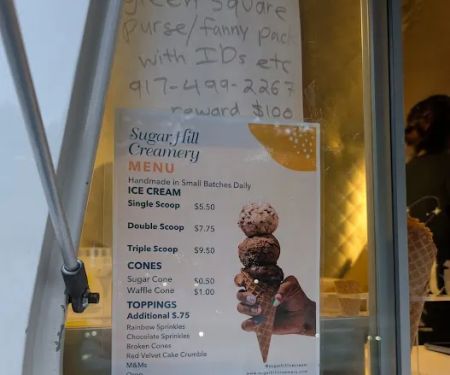 green square
purse/fanny pack
with IDs etc
917-499-2267
reward $100
Sugar Hill
Creamery
MENU
Handmade in Small Batches Daily
ICE CREAM
Single Scoop $5.50
Double Scoop $7.75
Triple Scoop $9.50
CONES
Sugar Cone $0.50
Waffle Cone $1.00
TOPPINGS
Additional $.75
Rainbow Sprinkles
Chocolate Sprinkles
Broken Cones
Red Velvet Cake Crumble
M&Ms
Oreo